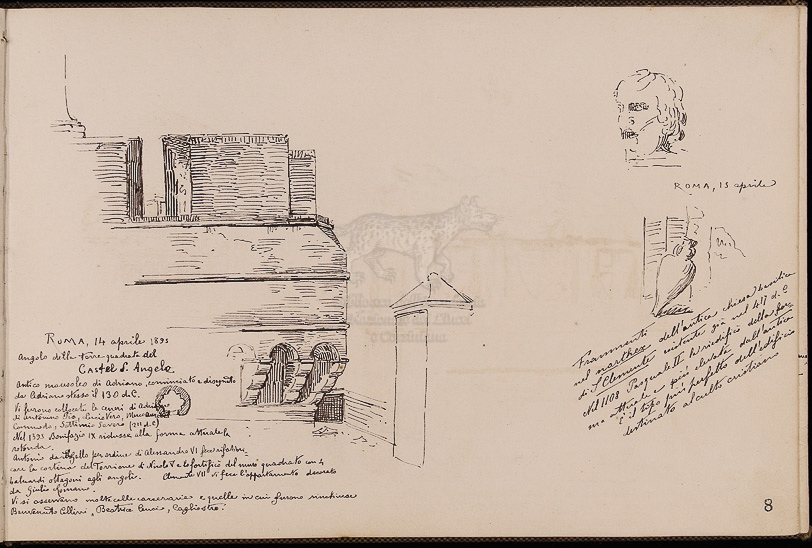 ROMA, 14 aprile 1895
Angolo della torre quadrata del
Castel S. Angelo
Antico mausoleo di Adriano, cominciato e disegnato
da Adriano stesso il 130 d.C.
Vi furono collocate le ceneri di Adriano
di Antonino Pio, Lucio Vero,
Commodo, Settimio Severo (211 d.C.)
Nel 1393 Bonifazio IX ridusse alla forma attuale la
rotonda.
Antonio da Sangallo per ordine di Alessandro VI fece
le cortine del Torrione di Nicolò V e lo fortificò del muro quadrato con 4
baluardi ottagoni agli angoli. Clemente VII vi fece l'appartamento decorato
da Giulio Romano.
Vi si osservano molte celle carcerarie e quelle in cui furono rinchiuse
Benvenuto Cellini, Beatrice Cencio, Cagliostro.
ROMA, 15 aprile
Frammenti
nel narthex dell'antica chiesa basilica
di S. Clemente esistente già nel 417 d.C.
Nel 1108 Pasquale II la riedificò della for
ma attuale e più elevata dall'antica
È il tipo più perfetto dell'edificio
destinato al culto cristiano
8